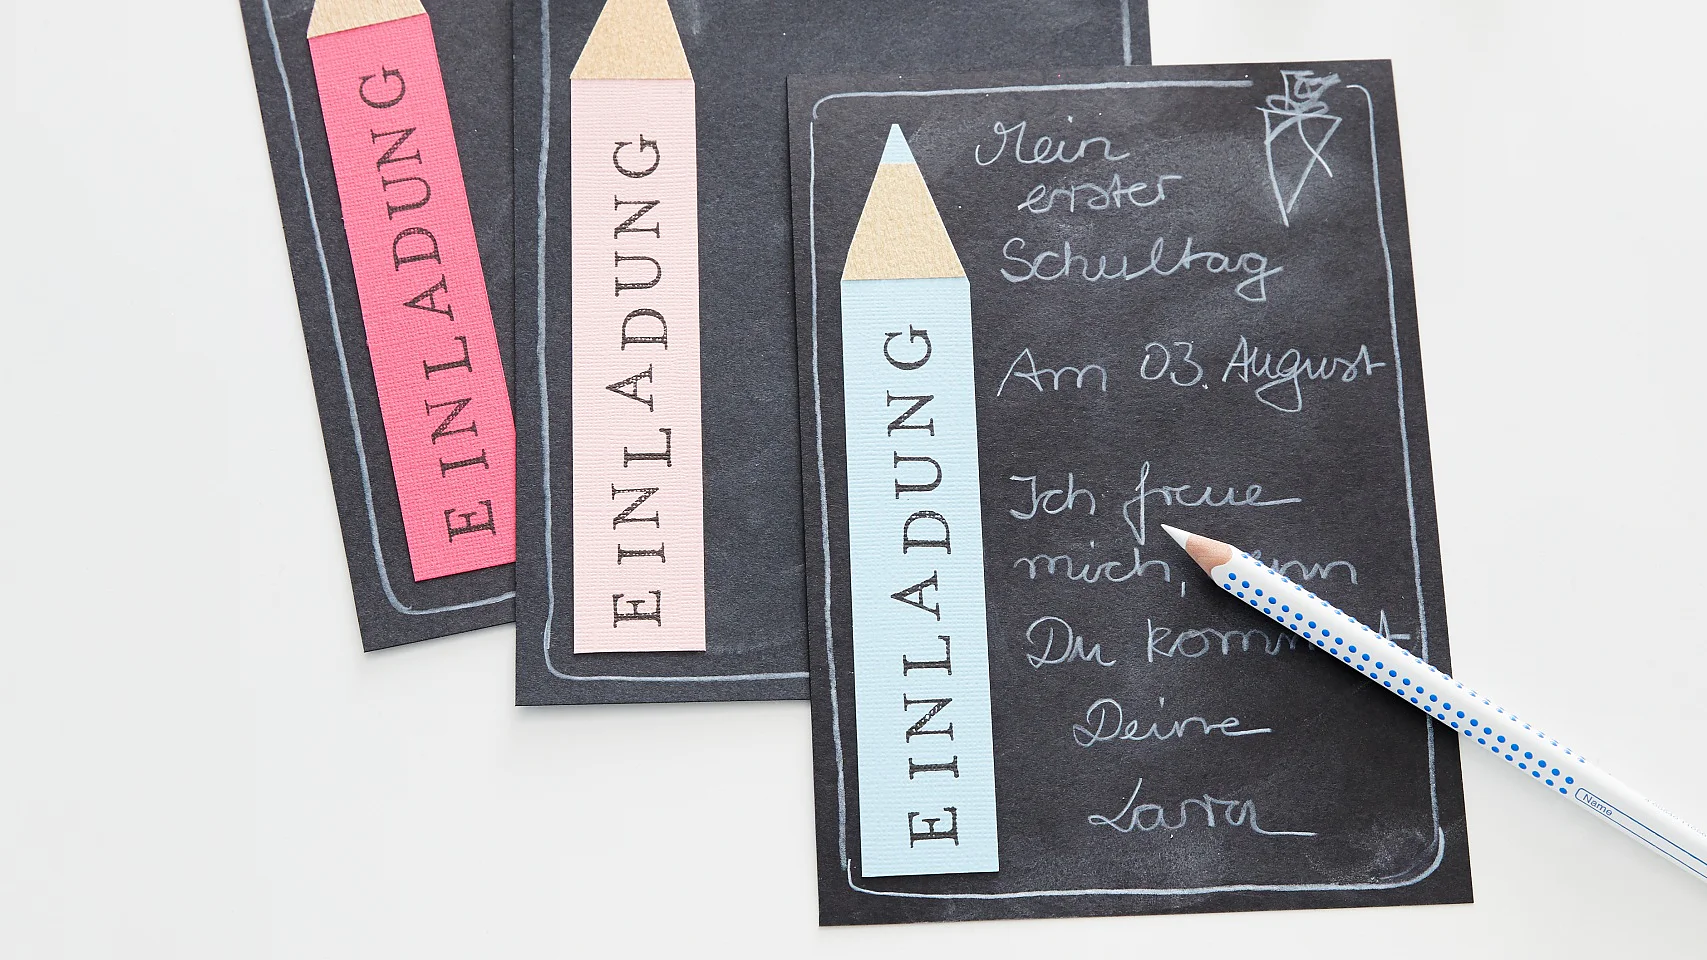 EINLADUNG
EINLADUNG
EINLADUNG
Mein
erster
Schultag
Am 03. August
Ich freue
mich,
Du kommst
Deine
Larra
Name